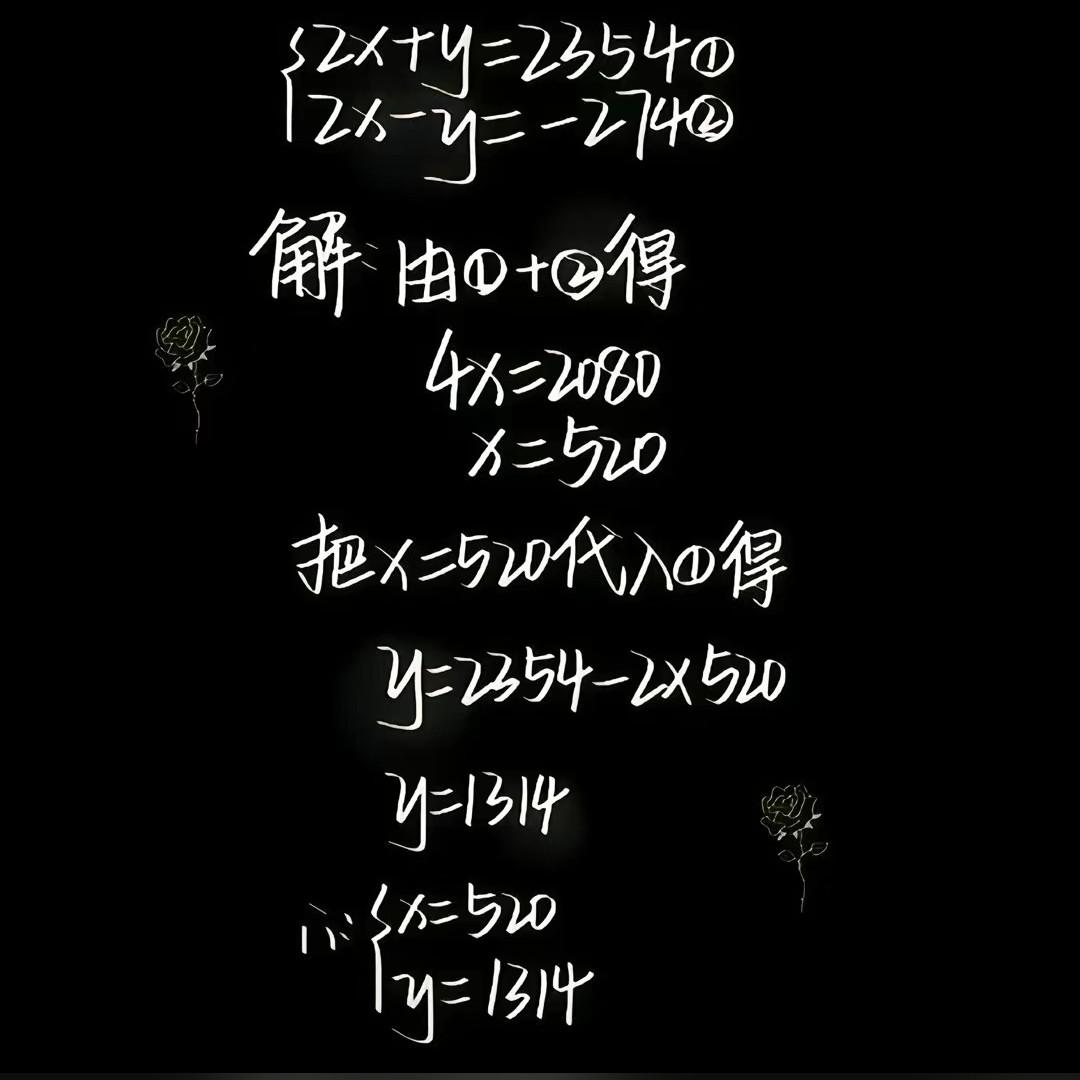 {2x+y=2354①
2x-y=-274②
解:由①+②得
4x=2080
x=520
把x=520代入①得
y=2354-2×520
y=1314
∴{x=520
y=1314